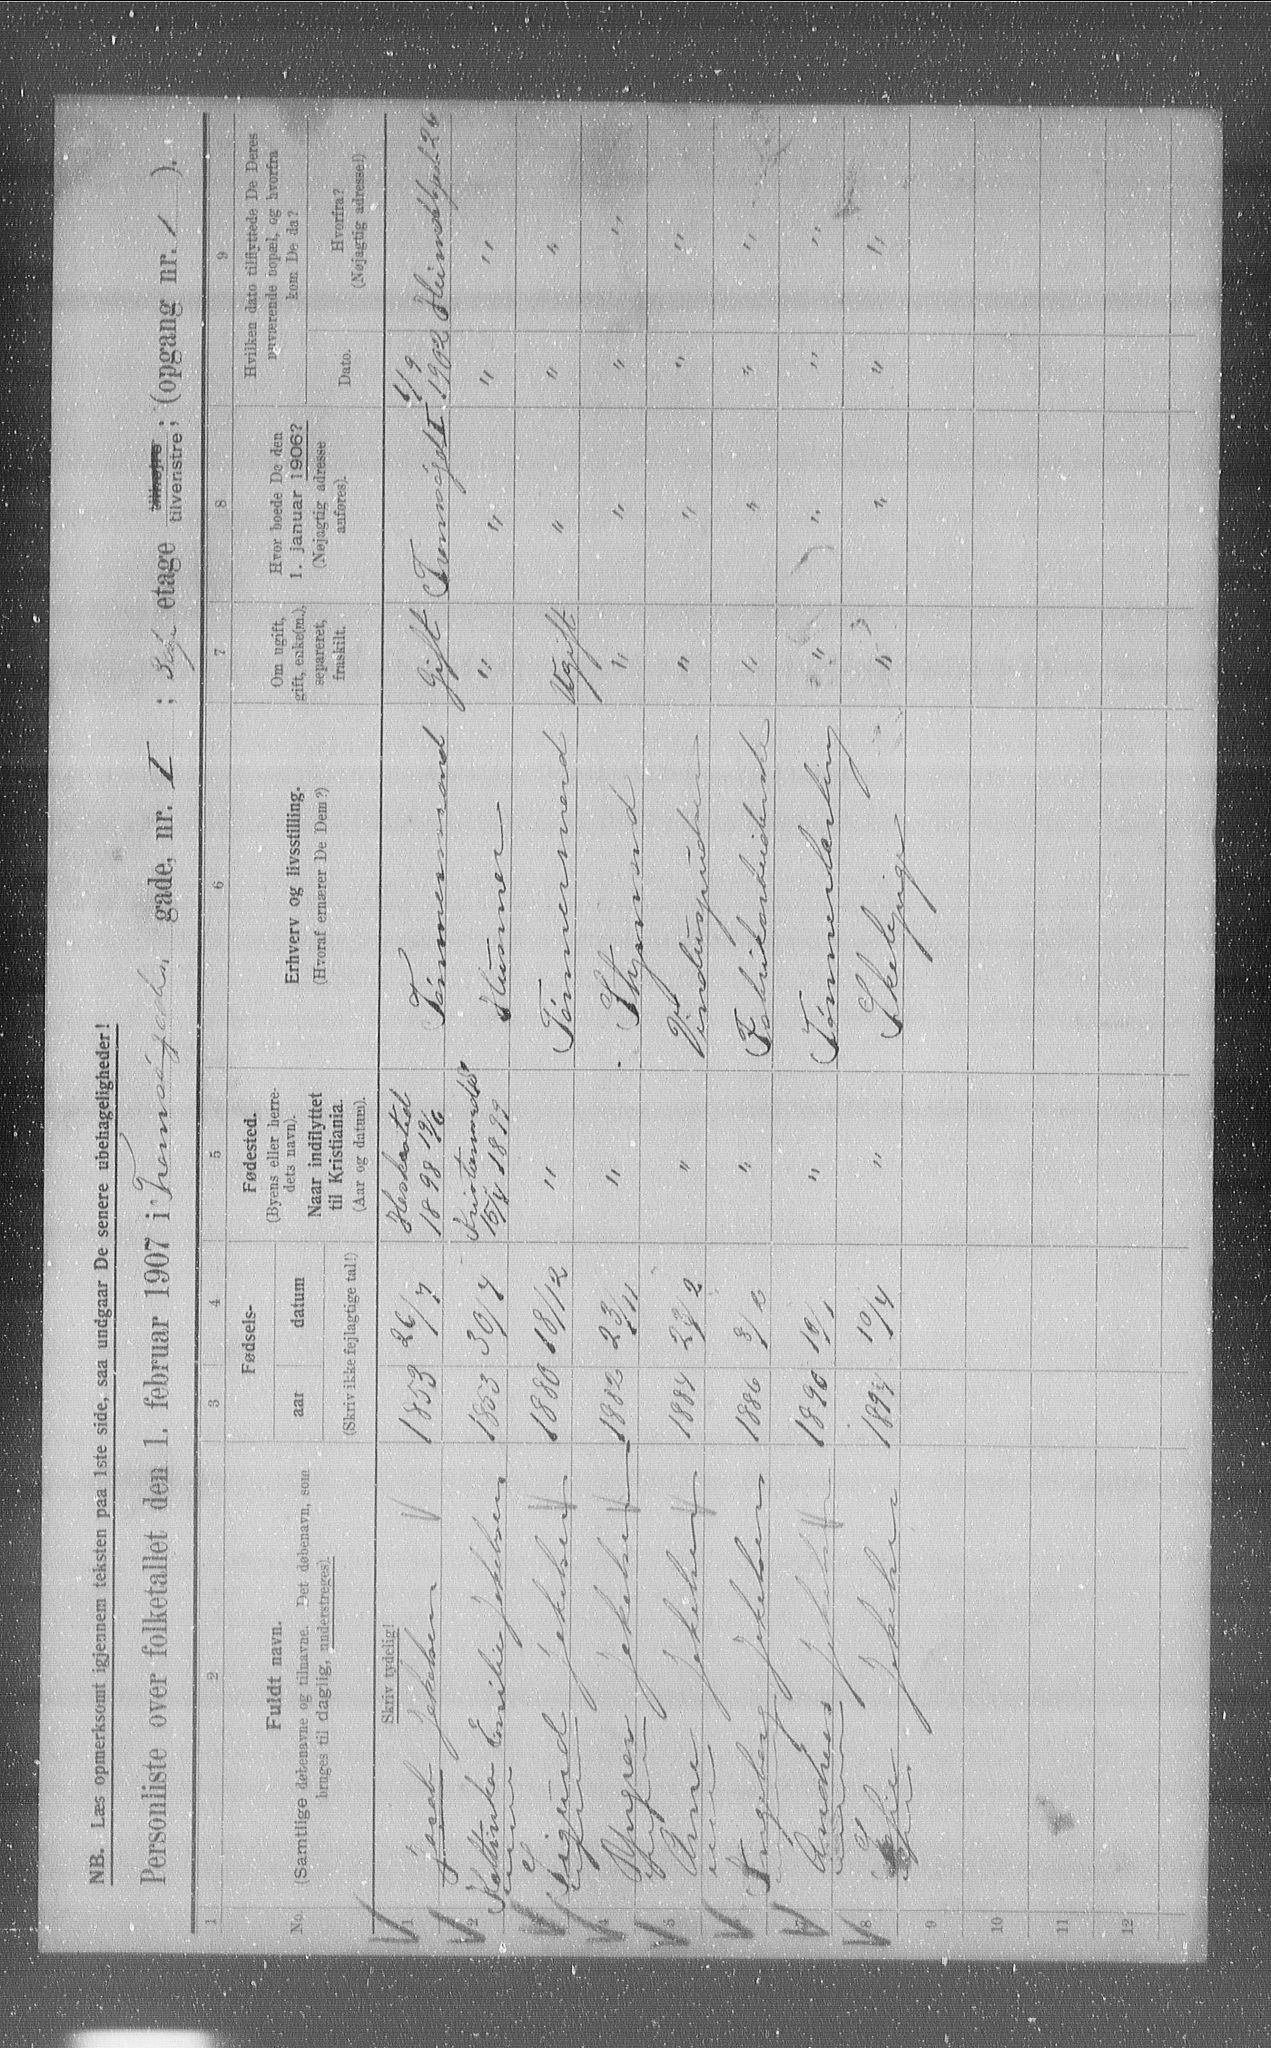 NB. Læs opmerksomt igjennem teksten paa 1ste side, saa undgaar De senere ubehageligheder!
Personliste over folketallet den 1. februar 1907 i gade, nr. 1 ; etage tilhøjre tilvenstre ; (opgang nr. 1 ).
1 2 3 4 5 6 7 8 9
No. Fuldt navn. (Samtlige døbenavne og tilnavne. Det døbenavn, som bruges til daglig, understreges).
Fødsels- aar datum (Skriv ikke fejlagtige tal!)
Fødested. (Byens eller herredets navn). Naar indflyttet til Kristiania. (Aar og datum).
Erhverv og livsstilling. (Hvoraf ernærer De Dem?)
Om ugift, gift, enke(m.), separeret, fraskilt.
Hvor boede De den 1. januar 1906? (Nøjagtig adresse anføres).
Hvilken dato tilflyttede De Deres nuværende bopæl, og hvorfra kom De da?
Dato. Hvorfra? (Nøjagtig adresse!)
Skriv tydelig!
1 Jakobsen 1853 26/7 1898 19/6 Tømmermand Gift 1/9 1902
2 Emilie Jakobsen 1853 30/7 15/4 1899 Husmor " " " "
3 Sigurd Jakobsen 1880 18/12 " Tømmermand Ugift " " "
4 Yngvar Jakobsen 1882 23/11 " Styrmand " " " "
5 Arne Jakobsen 1884 23/2 " Vinduspudser " " " "
6 Ingeborg Jakobsen 1886 8/2 " Fabrikarbeiderske " " " "
7 Andreas Jakobsen 1890 19/1 " Tømmerlærling " " " "
8 Jakobsen 1894 10/4 " Skolepige " " " "
9
10
11
12